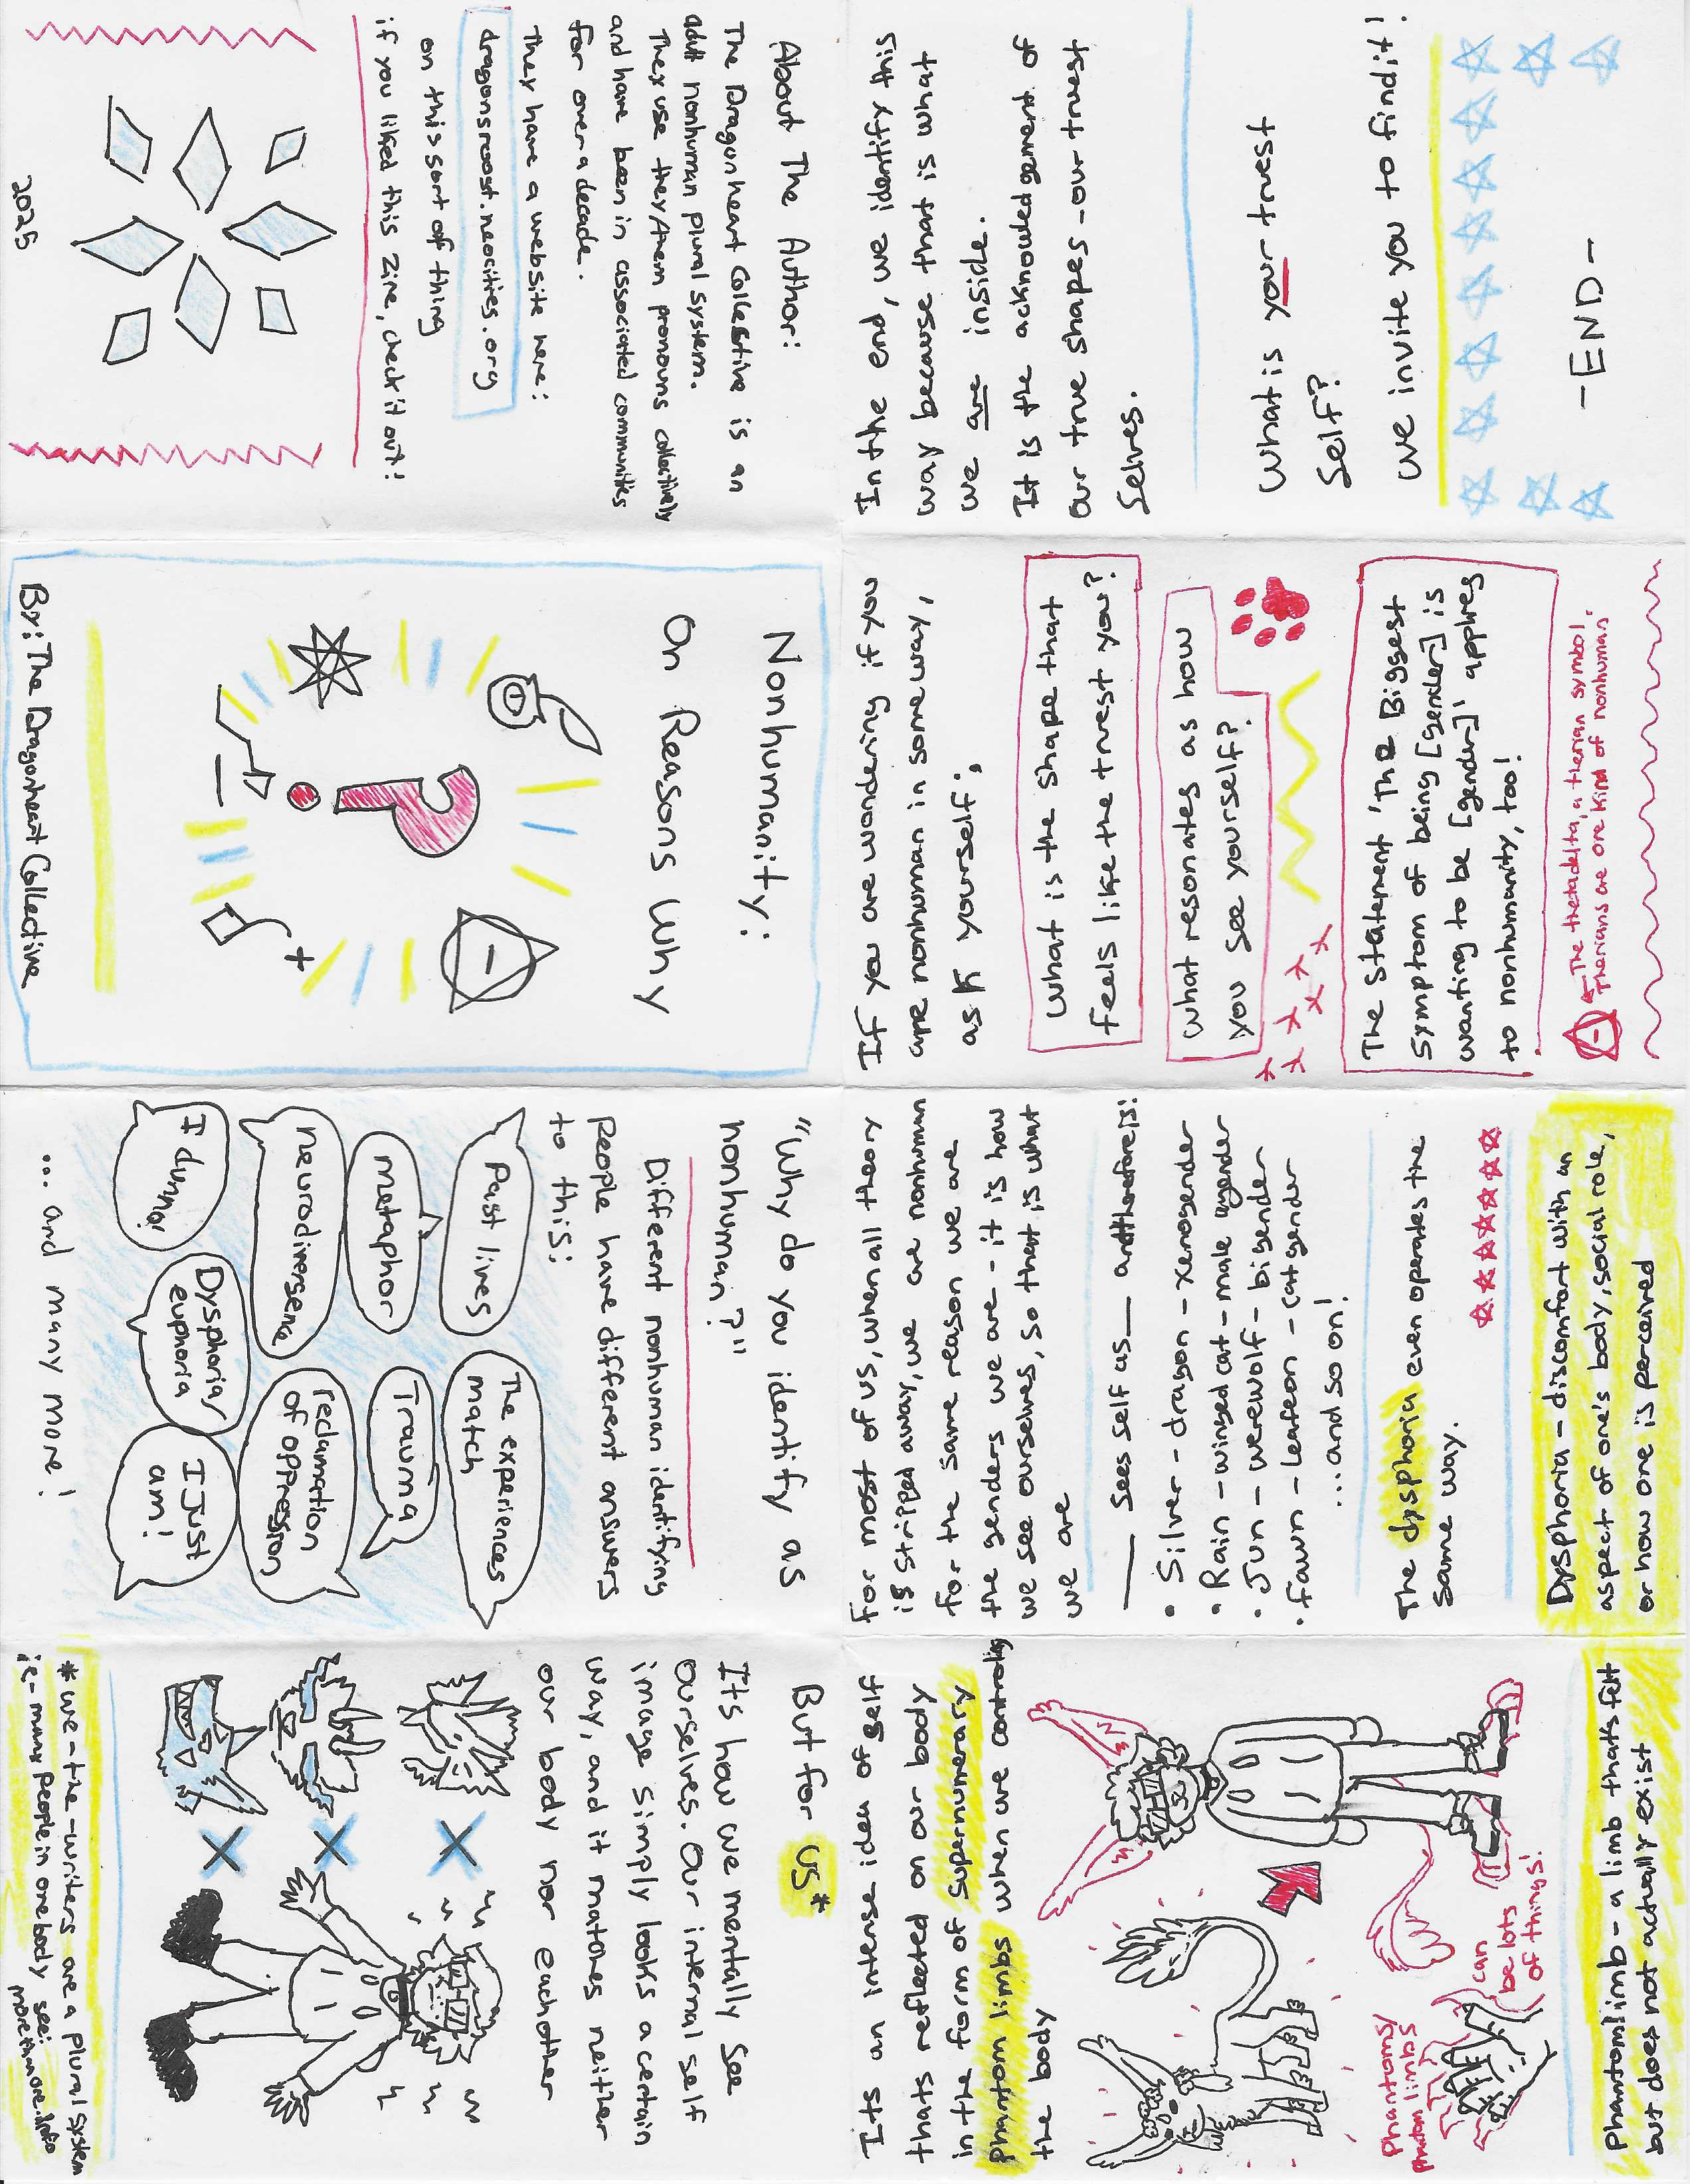 Nonhumanity:
On Reasons Why
?
By: The Dragonheart Collective
"Why do you identify as
nonhuman?"
Different nonhuman identifying
people have different answers
to this:
Past lives
The experiences
match
metaphor
Trauma
neurodivergence
reclamation
of oppression
Dysphoria/
euphoria
I dunno!
I Just
am!
... and many more!
But for us*
It's how we mentally see
ourselves. Our internal self
image simply looks a certain
way, and it matches neither
our body nor eachother
*we - the - writers are a plural system
ie - many people in one body see:
morethanone.info
Its an intense idea of self
thats reflected on our body
in the form of supernumerary
phantom limbs when we controling
the body
Phantoms/
phantom limbs
can
be lots
of things!
Phantom limb - a limb thats felt
but does not actually exist
For most of us, when all theory
is stripped away, we are nonhuman
for the same reason we are
the genders we are - it is how
we see ourselves, so that is what
we are
___ sees self as ___ and therefore is!
• Silver - dragon - xenogender
• Rain - winged cat - male agender
• Jun - werewolf - bigender
• Fawn - leafeon - catgender
...and so on!
The dysphoria even operates the
same way.
Dysphoria - discomfort with an
aspect of one's body, social role,
or how one is perceived
If you are wondering if you
are nonhuman in some way,
ask yourself;
What is the shape that
feels like the truest you?
What resonates as how
you see yourself?
The statement 'The Biggest
symptom of being [gender] is
wanting to be [gender]' applies
to nonhumanity, too!
←The thetadelta, a therian symbol.
Therians are one kind of nonhuman.
In the end, we identify this
way because that is what
we are inside.
It is the acknowledgement of
our true shapes - our truest
selves.
What is your truest
self?
We invite you to find it!
- END -
About The Author:
The Dragonheart Collective is an
adult nonhuman plural system.
They use they/them pronouns collectively
and have been in associated communities
for over a decade.
They have a website here:
dragonsroost.neocities.org
on this sort of thing
if you liked this zine, check it out!
2025